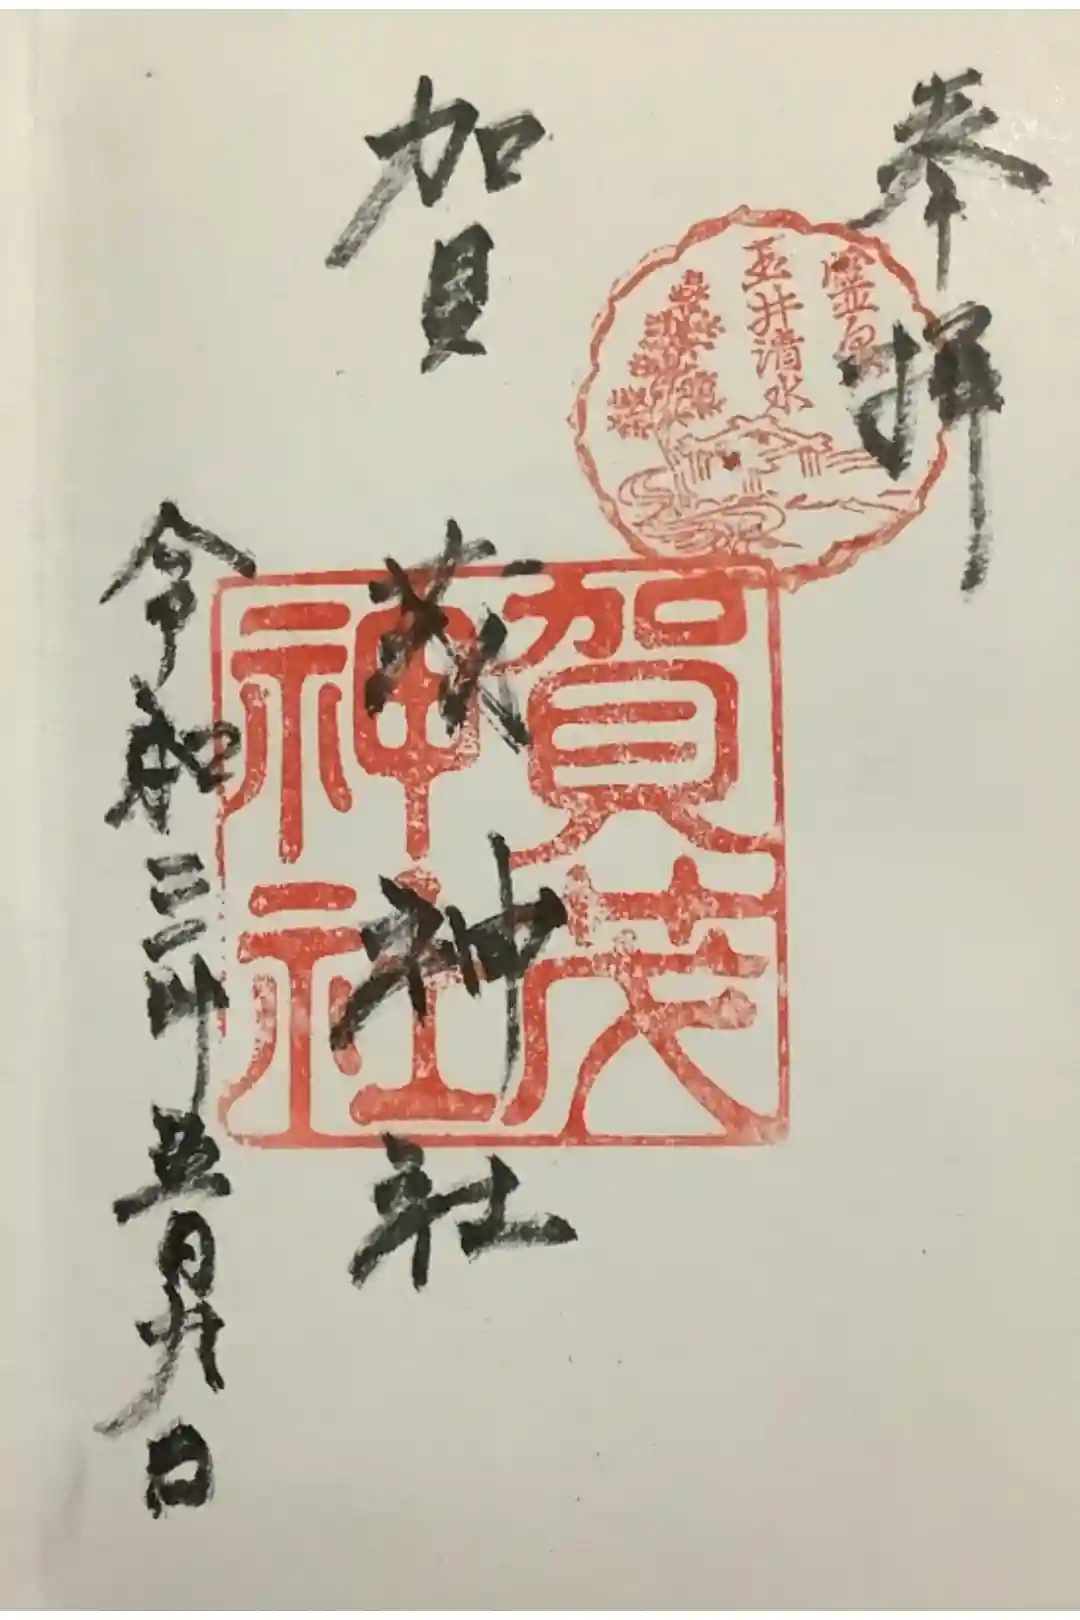 奉拝
霊泉
玉井清水
賀茂神社
賀茂
神社
令和三年五月九日